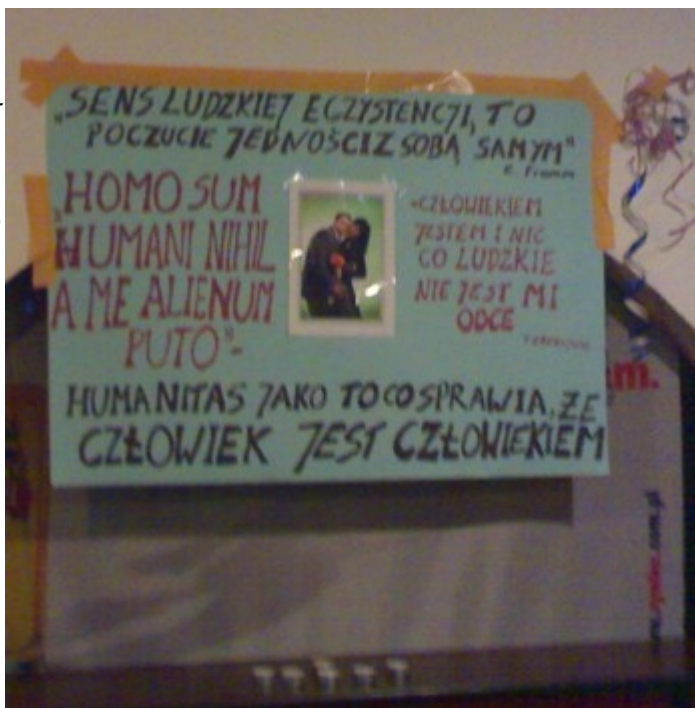 „SENS LUDZKIEJ ECZYSTENCJI, TO
POCZUCIE JEDNOŚCI Z SOBĄ SAMYM"
E. Fromm
„HOMO SUM
HUMANI NIHIL
A ME ALIENUM
PUTO"-
„CZŁOWIEKIEM
JESTEM I NIC
CO LUDZKIE
NIE JEST MI
ODCE
HUMANITAS JAKO TO CO SPRAWIA, ŻE
CZŁOWIEK JEST CZŁOWIEKIEM
.com.pl